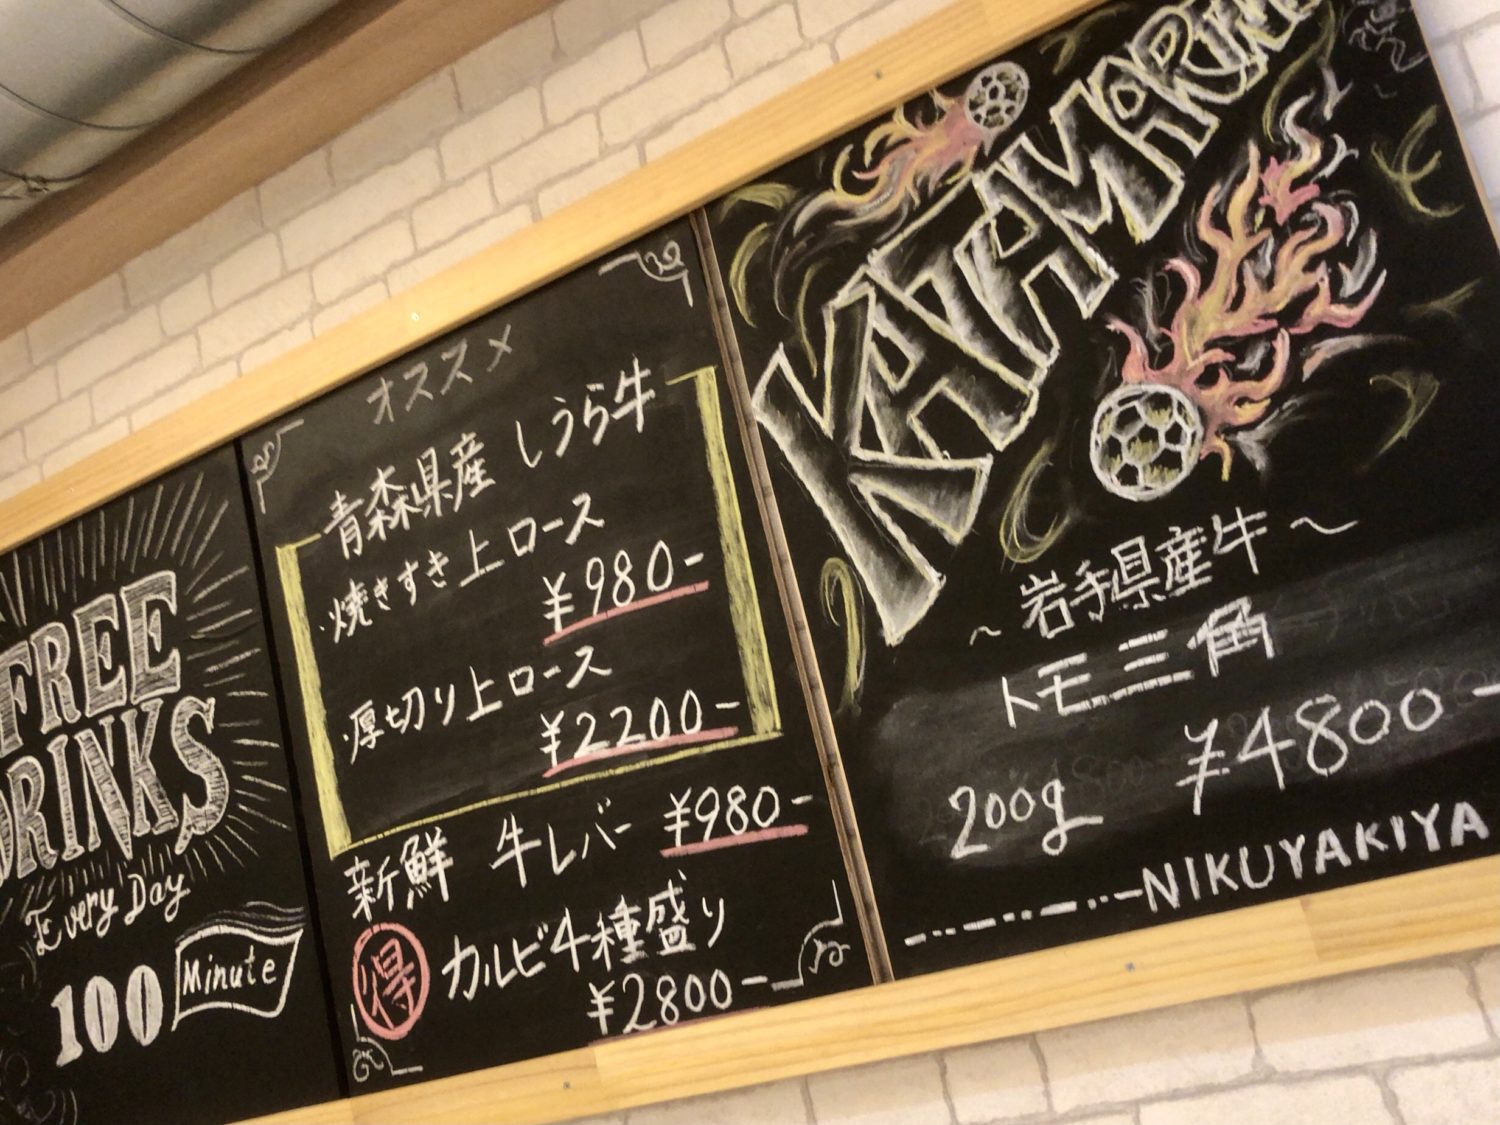 FREE
DRINKS
Every Day
100 Minute
オススメ
青森県産 しうら牛
・焼きすき上ロース
¥980-
・厚切り上ロース
¥2200-
新鮮 牛レバー ¥980-
得 カルビ4種盛り
¥2800-
~岩手県産牛~
トモ三角
200g ¥4800-
NIKUYAKIYA